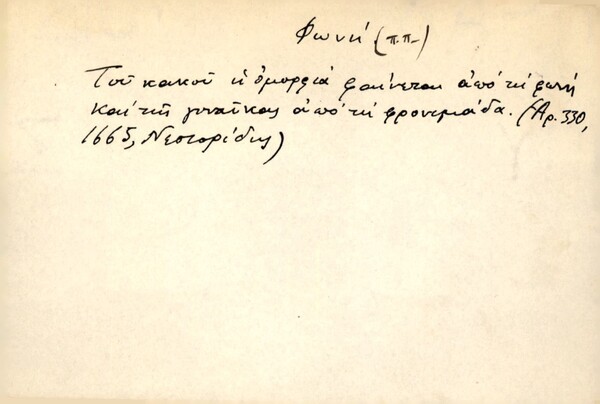 Φωνή (π.π.)
Τοῦ κακοῦ ἡ ὀμορφιά φαίνεται ἀπό τή φωνή
καί τῆς γυναίκας ἀπό τή φρονιμάδα. (Ἀρ. 330,
1665, Νεστορίδης)